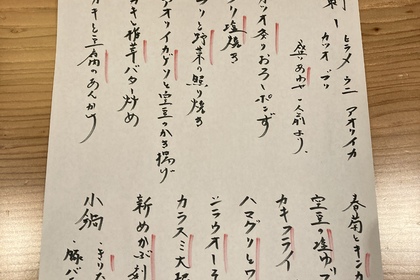 刺し ヒラメ ウニ アオリイカ
カツオ ブリ
盛り合わせ 一人前より
カツオ炙りおろしポンず
ブリ塩焼き
ブリと野菜の照り焼き
アオリイカゲソと空豆のかき揚げ
カキと椎茸バター炒め
カキと豆腐のあんかけ
春菊とキンカ
空豆の塩ゆ
カキフライ
ハマグリとワ
シラウオーそ
カラスミ大根
新めかぶ刺
小鍋
・きりた
・豚バ